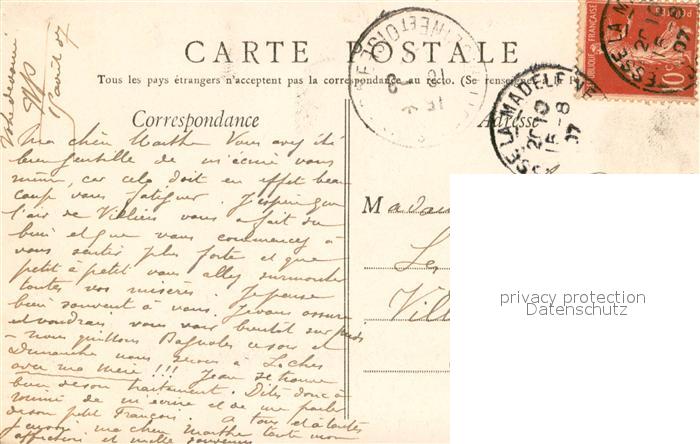 CARTE POSTALE
Tous les pays étrangers n'acceptent pas la correspondance au recto. (Se renseigner
Correspondance
Adresse
Ma chère Marthe Vous avez été
bien gentille de m'écrire vous
même, car cela doit en effet beau
coup vous fatiguer. J'espère que
l'air de Villiers vous a fait du
bien et que vous commencez à
vous sentir plus forte et que
petit à petit vous allez surmonter
toutes vos misères. Je pense
bien souvent à vous. Je vous assure
et voudrais vous voir bientôt sur pieds
- Nous quittons Bagnoles ce soir et
Dimanche nous serons à Loches
avec ma mère!!! Jean se trouve
bien de son traitement. Dites donc à
de m'écrire et de me parler
de son petit François. A tous et à toutes
ma chère Marthe toute mon
affection et mille souvenirs
Votre
avril 07
Mada
Le
Vill
LA MADELEINE
SEINE ET OISE
10 c
privacy protection
Datenschutz